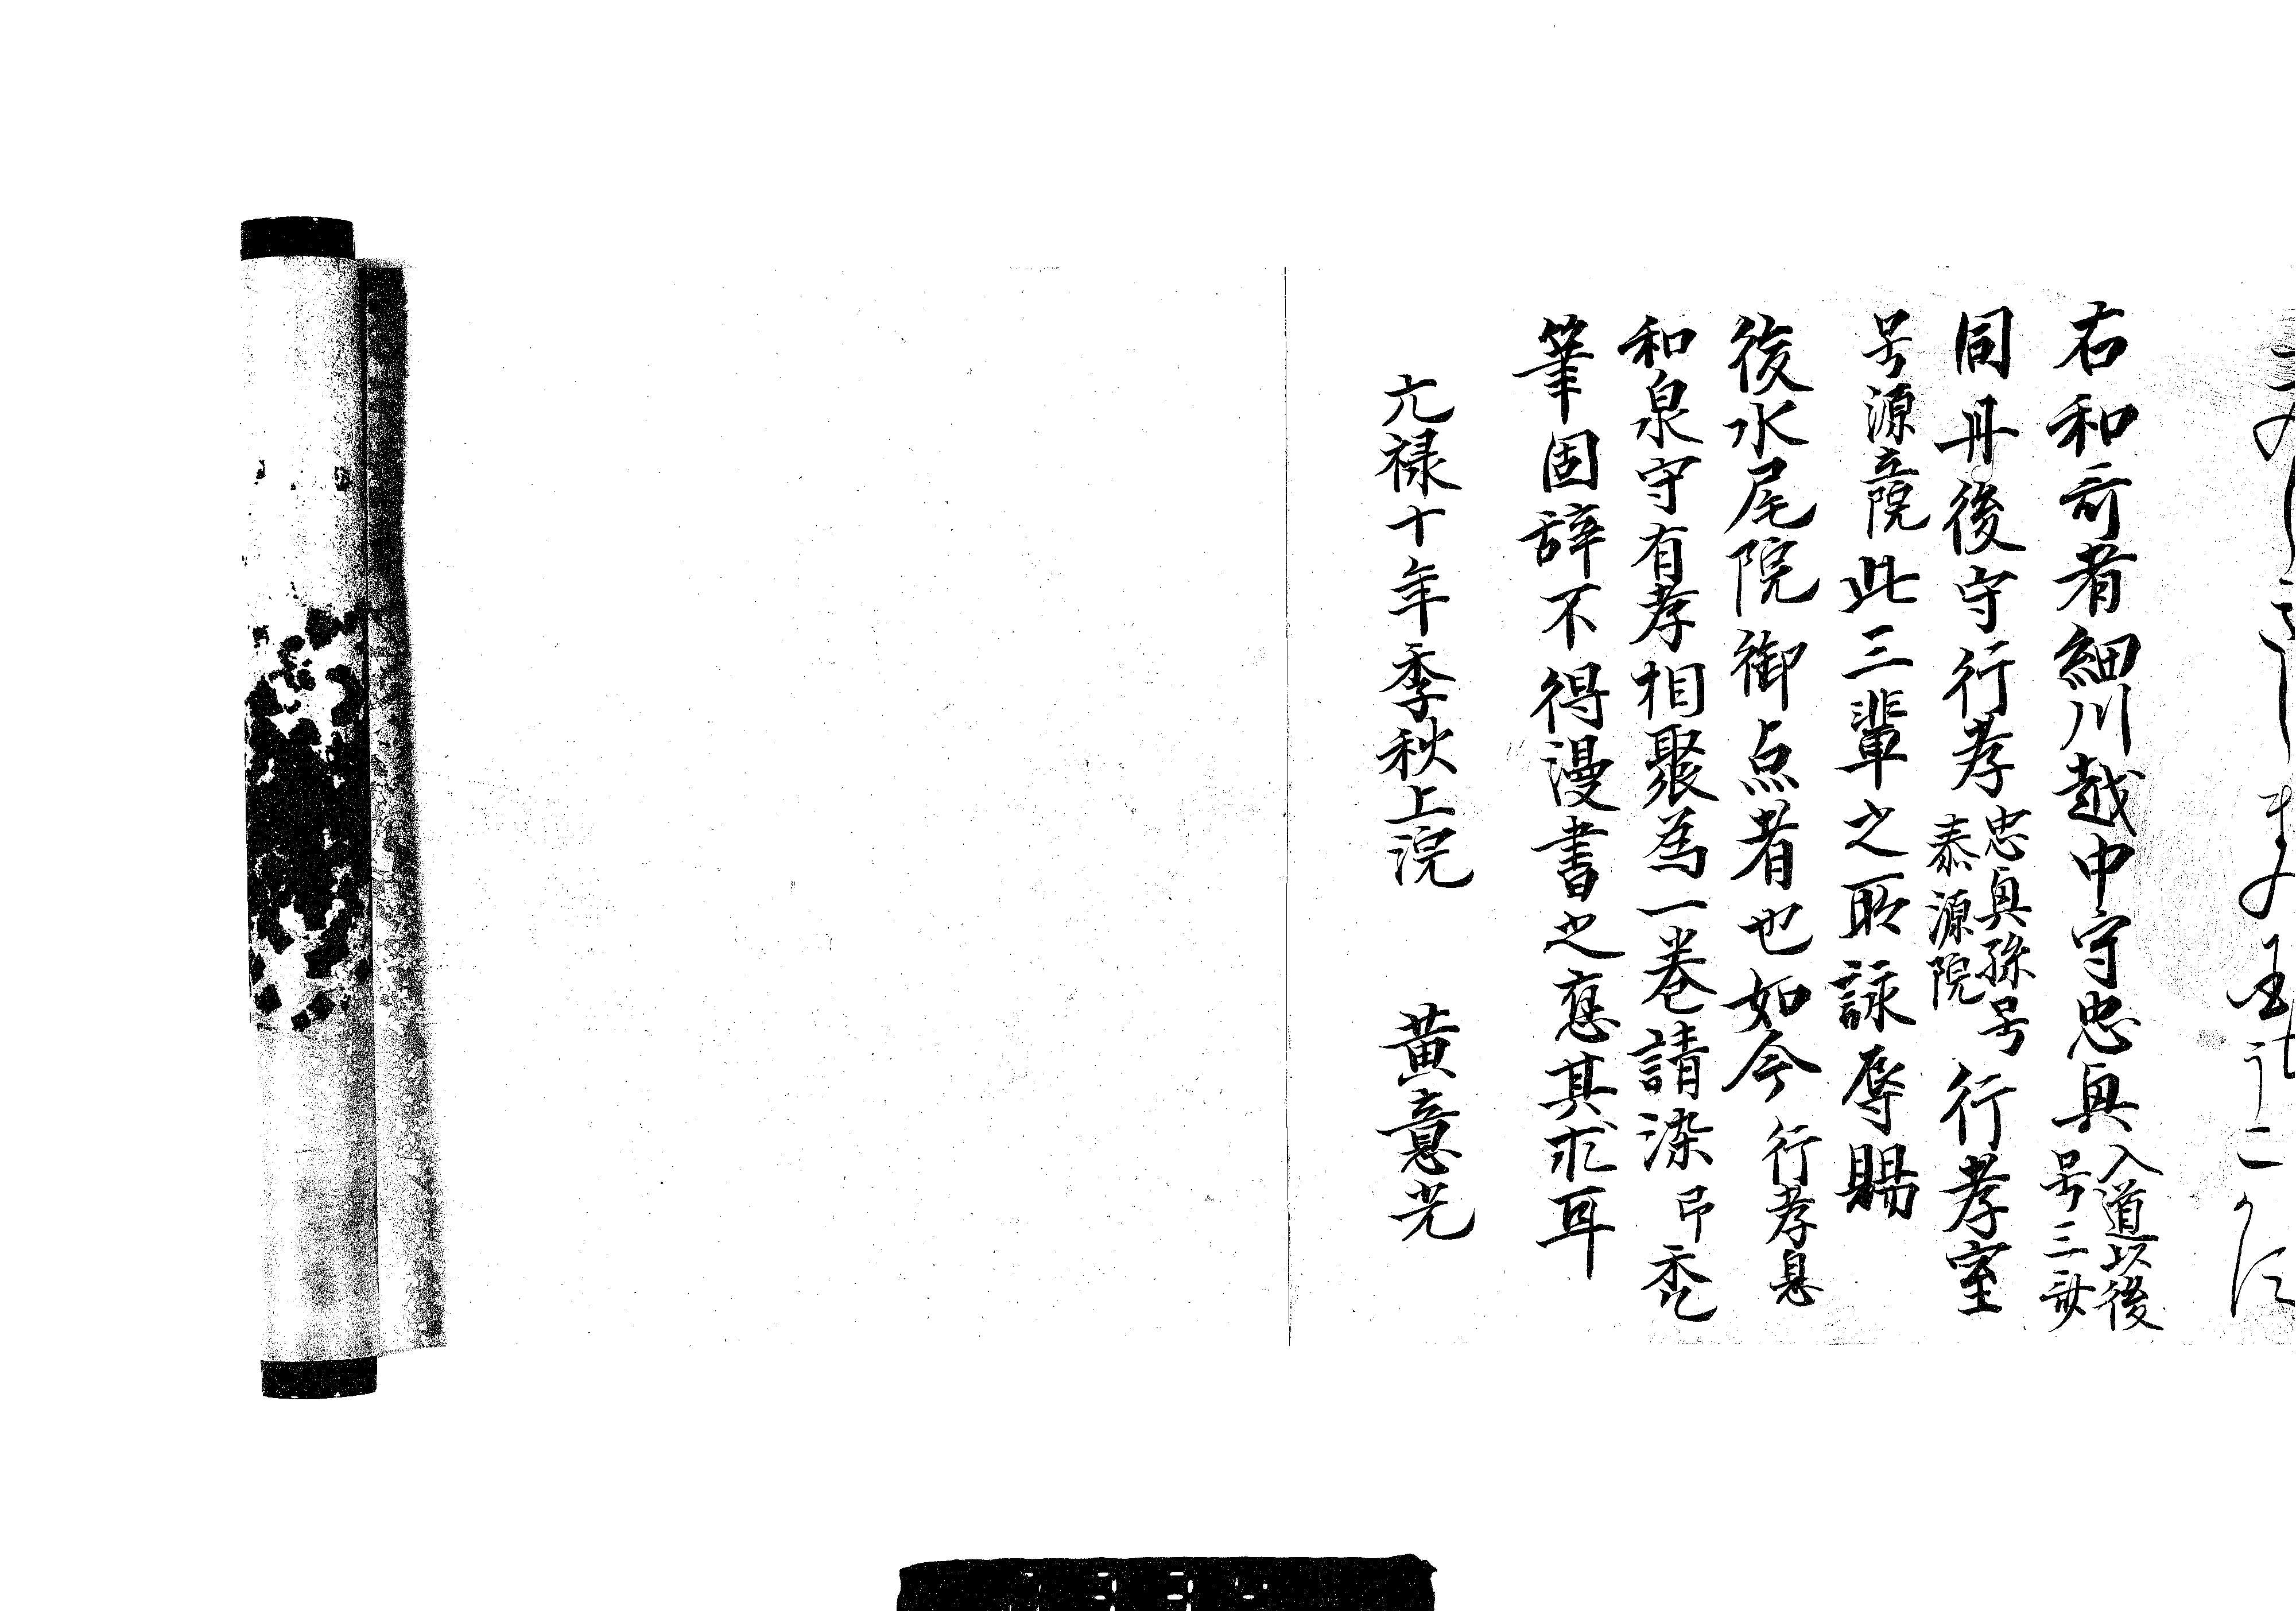 右和哥者細川越中守忠興入道以後号三斎
同丹後守行孝忠興孫号泰源院行孝室
号源立院此三輩之所詠辱賜
後水尾院御点者也如今行孝息
和泉守有孝相聚為一巻請染予禿
筆固辞不得漫書之応其求耳
元禄十年季秋上浣　黄意光